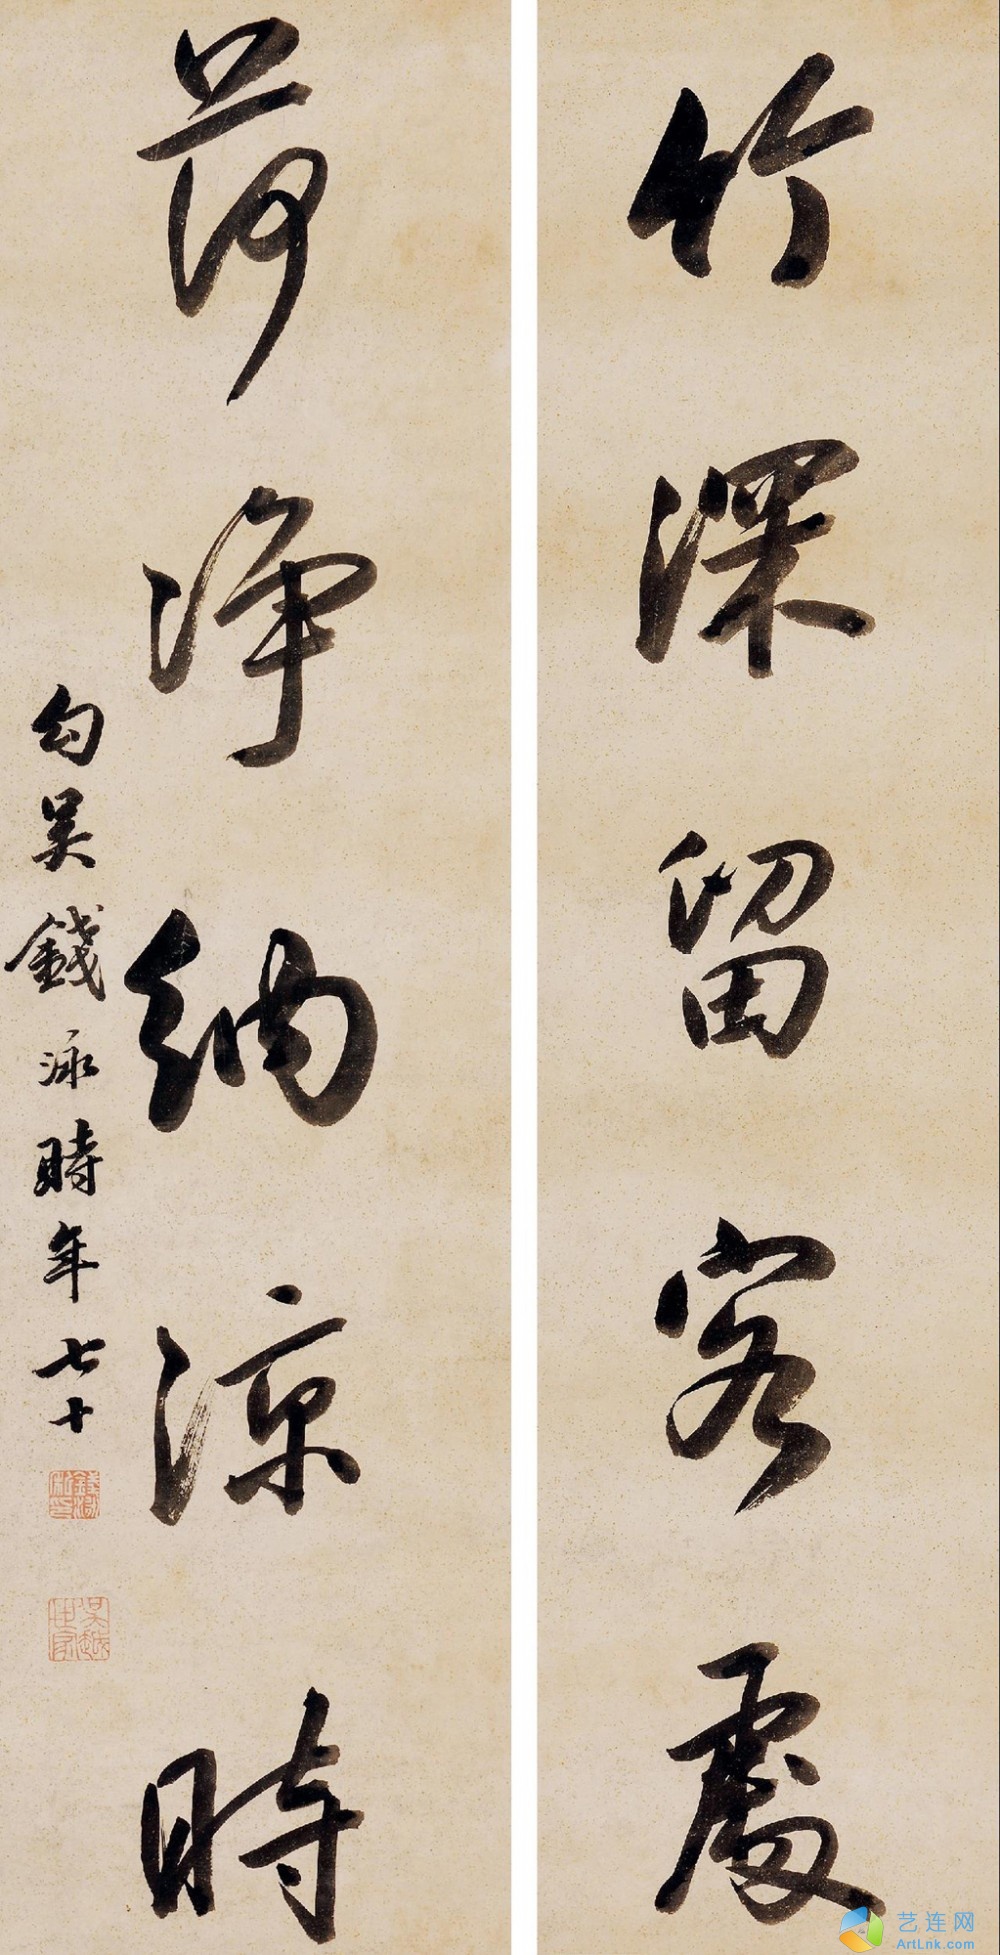 竹深留客處
荷浄納涼時
勾吳錢泳時年七十
吳越世家
艺连网
ArtLnk.com